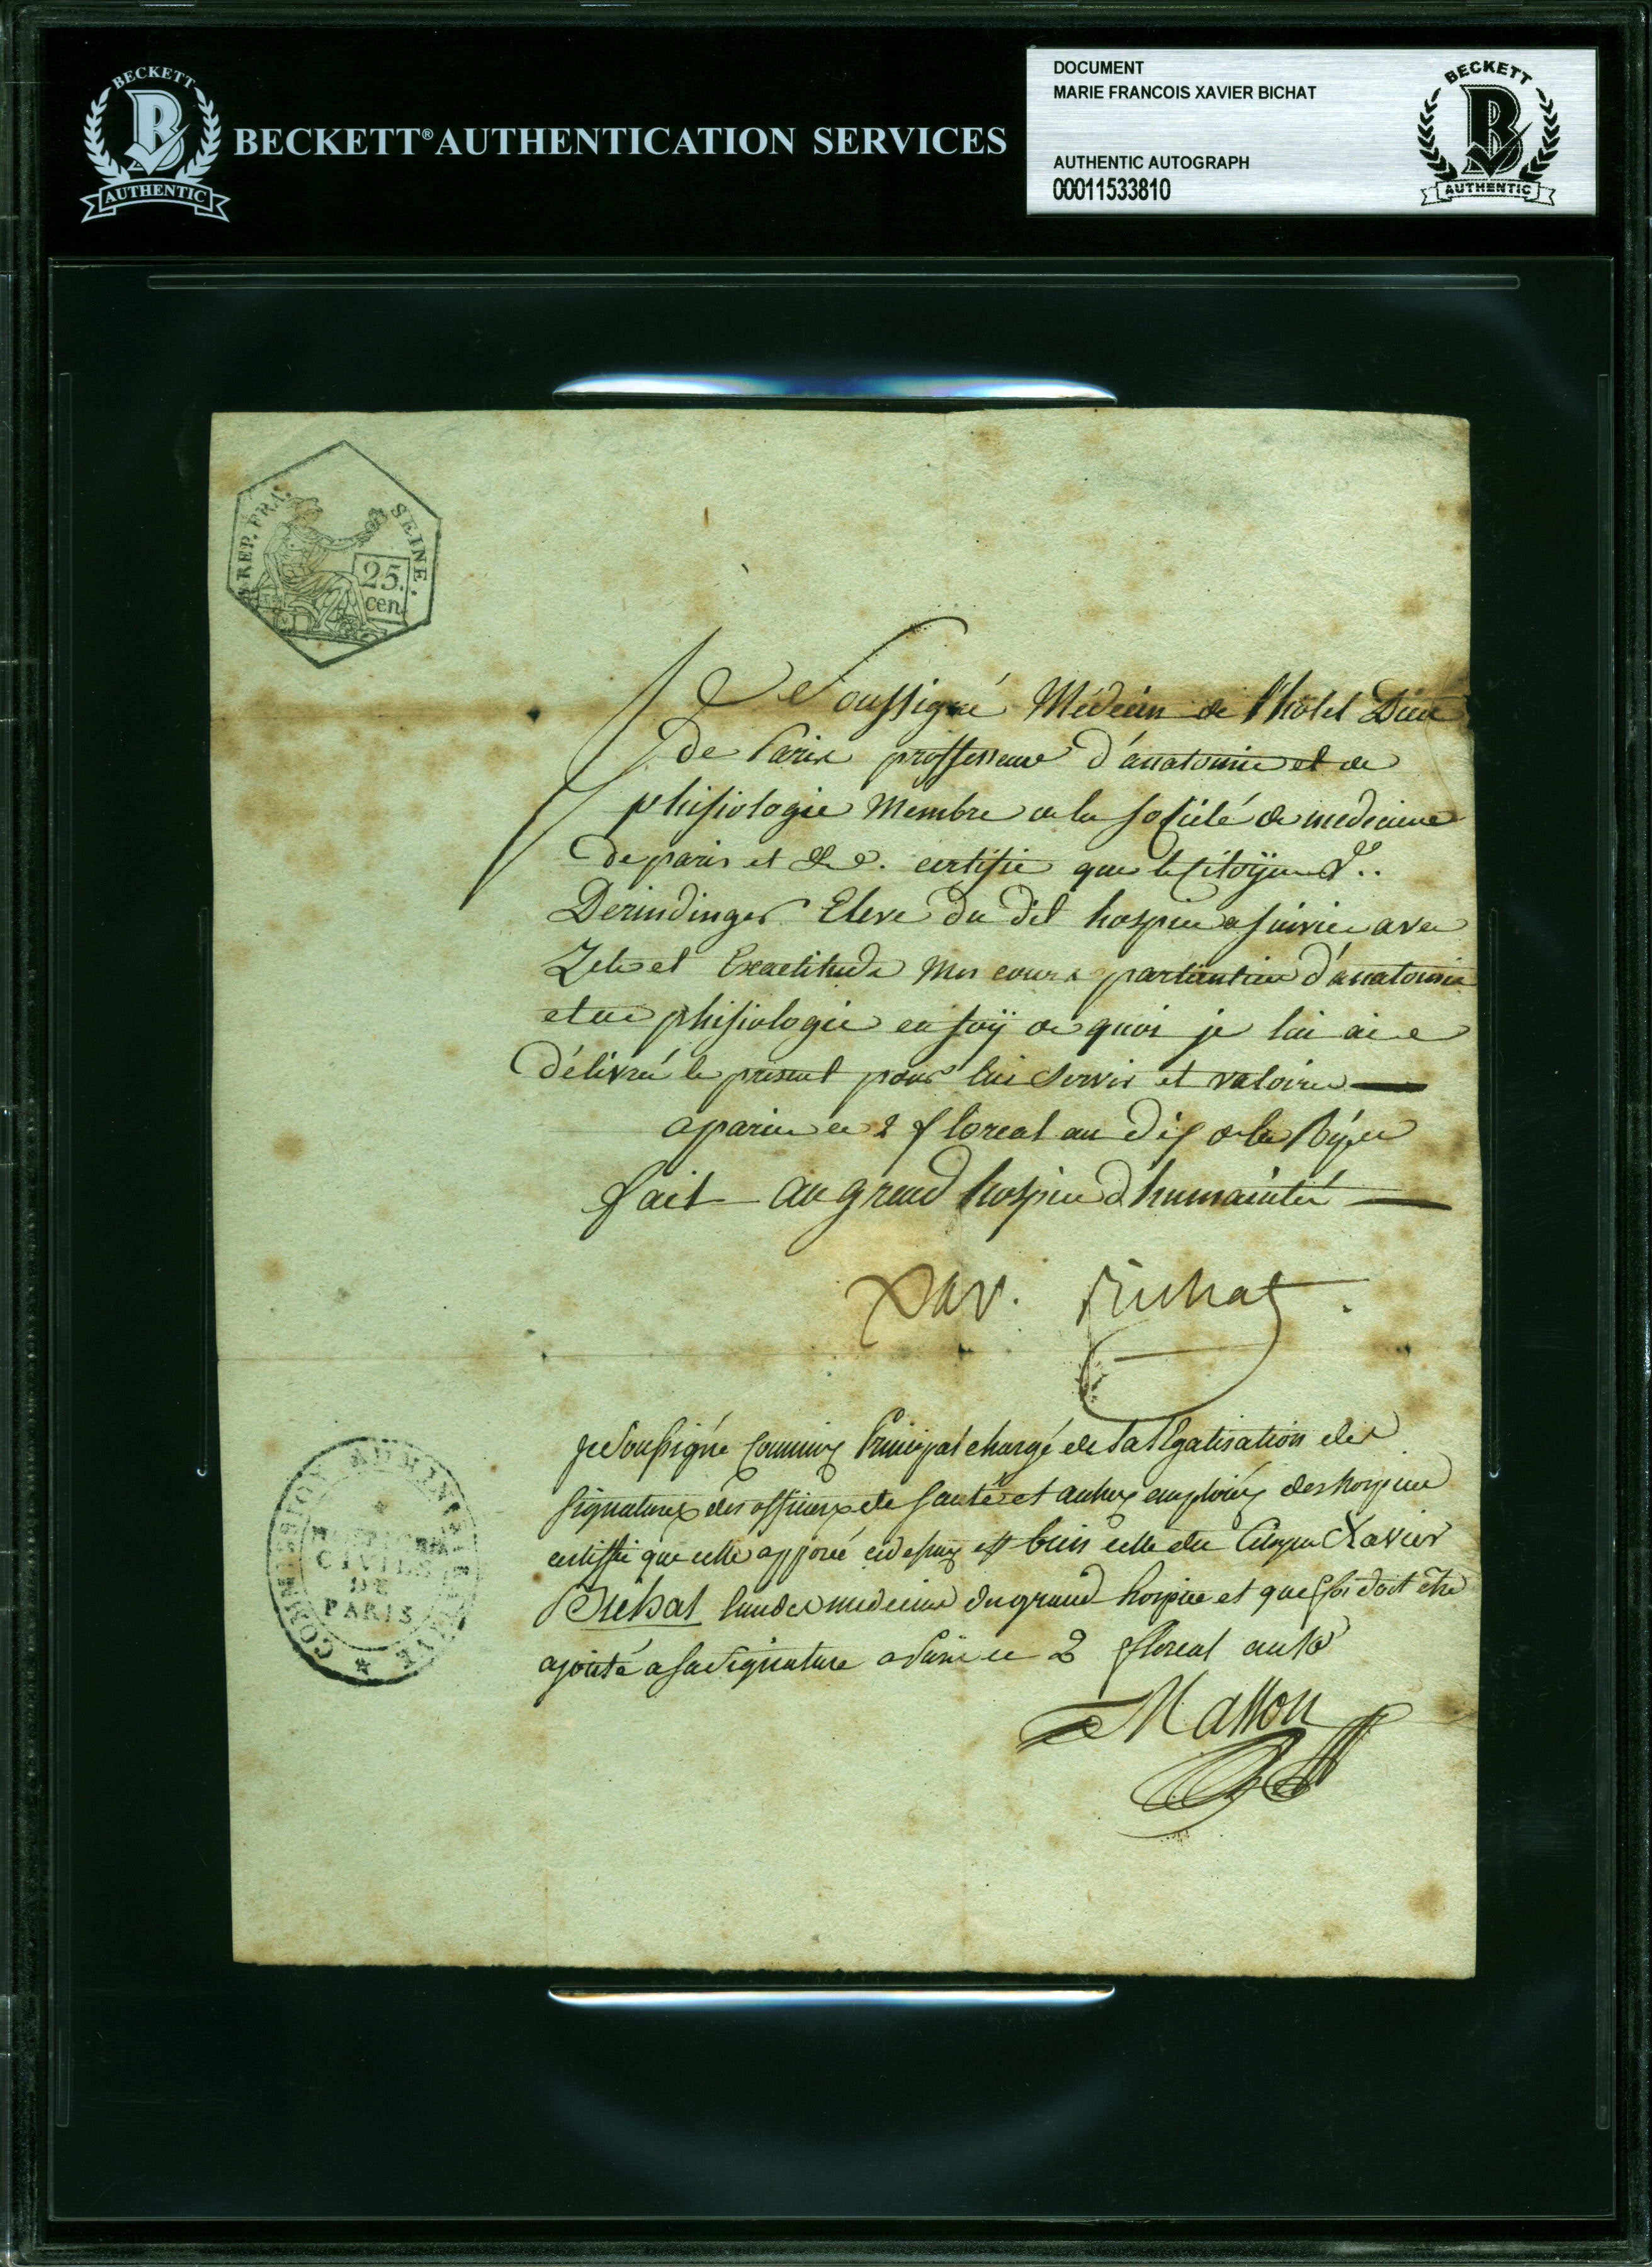 BECKETT
B
AUTHENTIC
BECKETT® AUTHENTICATION SERVICES
DOCUMENT
MARIE FRANCOIS XAVIER BICHAT
AUTHENTIC AUTOGRAPH
00011533810
BECKETT
B
AUTHENTIC
REP. FRA. SEINE.
25.
cen.
Je Soussigné Médecin de l'hotel Dieu
de Paris proffesseur d'anatomie et de
phisiologie Membre de la société de medecine
de paris et &c. certifie que le Citoÿen
Derindinger Eleve du dit hospice a suivie avec
Zele et Exactitude Mes cours particulier d'anatomie
et de phisiologie en foÿ de quoi je lui ai
délivré le present pour lui servir et valoire
a paris ce 2 floreal an dix de la Rép
fait au grand hospice d'humainité
Xav. Bichat.
Je Soussigné Commis Principal chargé de la légalisation des
signatures des officiers de santé et autres emploiés des hospices
certiffie que celle apposé cidessus est bien celle du Citoyen Xavier
Bichat l'un des medecins du grand hospice et que foi doit être
ajouté a sa signature a Paris ce 2 floreal an 10
Masson
COMMISSION ADMINISTRATIVE
HOSPICES
CIVILS
DE
PARIS